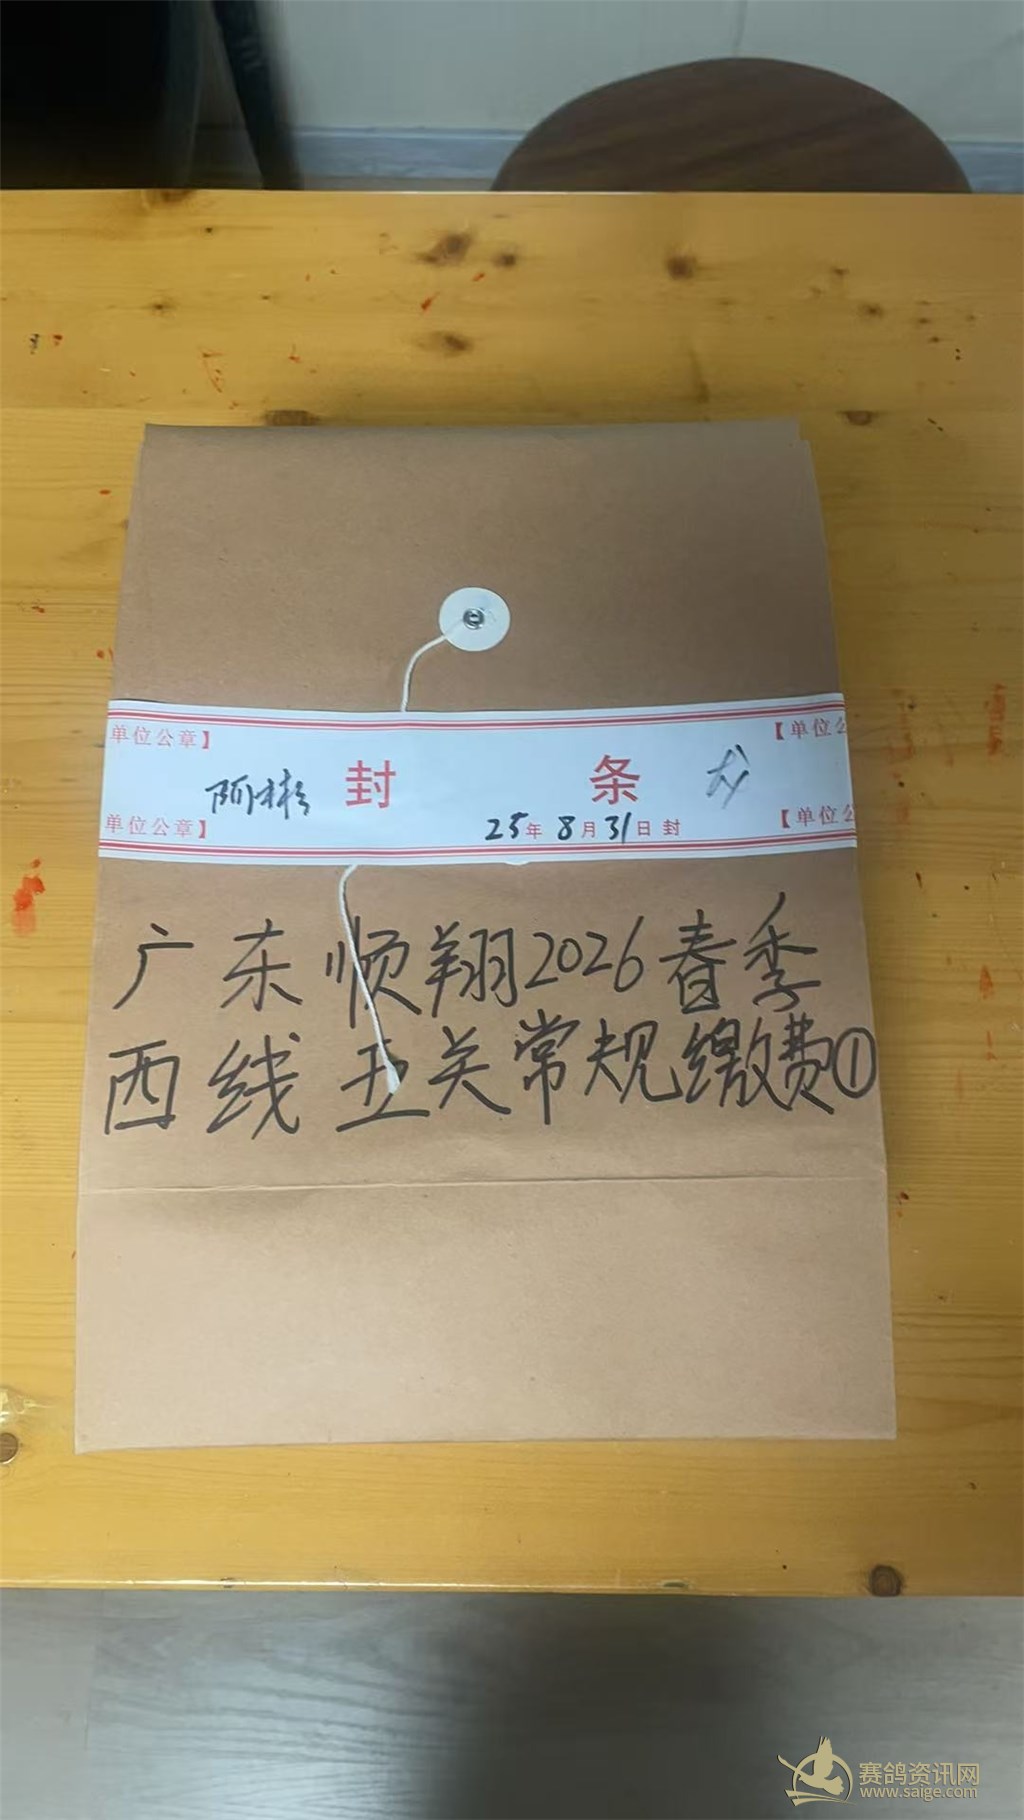 单位公章】
【单位公
阿彬
封 条
龙
单位公章】
25年 8月 31日 封
【单位公
广东顺翔2026春季
西线五关常规缴费①
赛鸽资讯网
www.saige.com